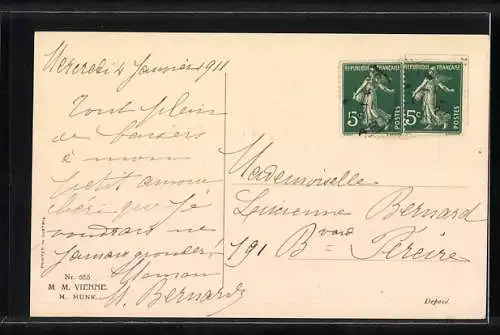 Mercredi 4 Janvier 1911
Tout plein
de baisers
à mon
petit amour
chéri que je
voudrais ne
jamais gronder!
Maman
M. Bernard
REPUBLIQUE FRANÇAISE
5c POSTES
REPUBLIQUE FRANÇAISE
5c POSTES
Mademoiselle
Lucienne Bernard
191 Bvard Péreire
PRINTED IN AUSTRIA
Nr. 555
M. M. VIENNE.
M. MUNK.
Déposé